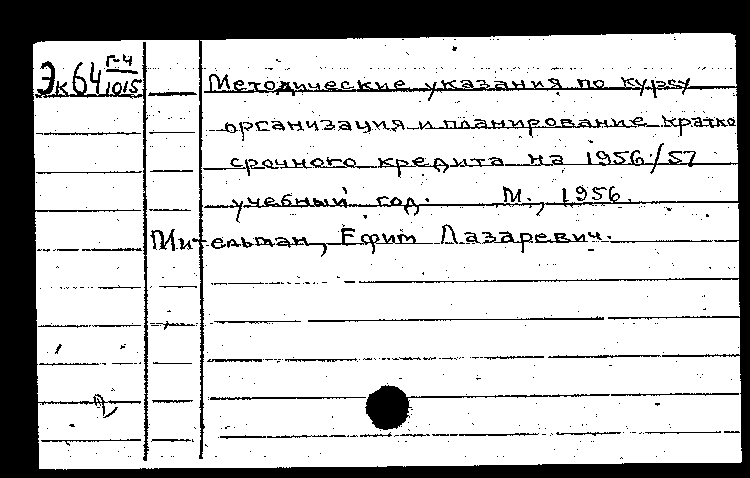 Эк64 Г-4/1015
Методические указания по курсу
организация и планирование кратко
срочного кредита на 1956/57
учебный год. М., 1956.
Мительман, Ефим Лазаревич.
2